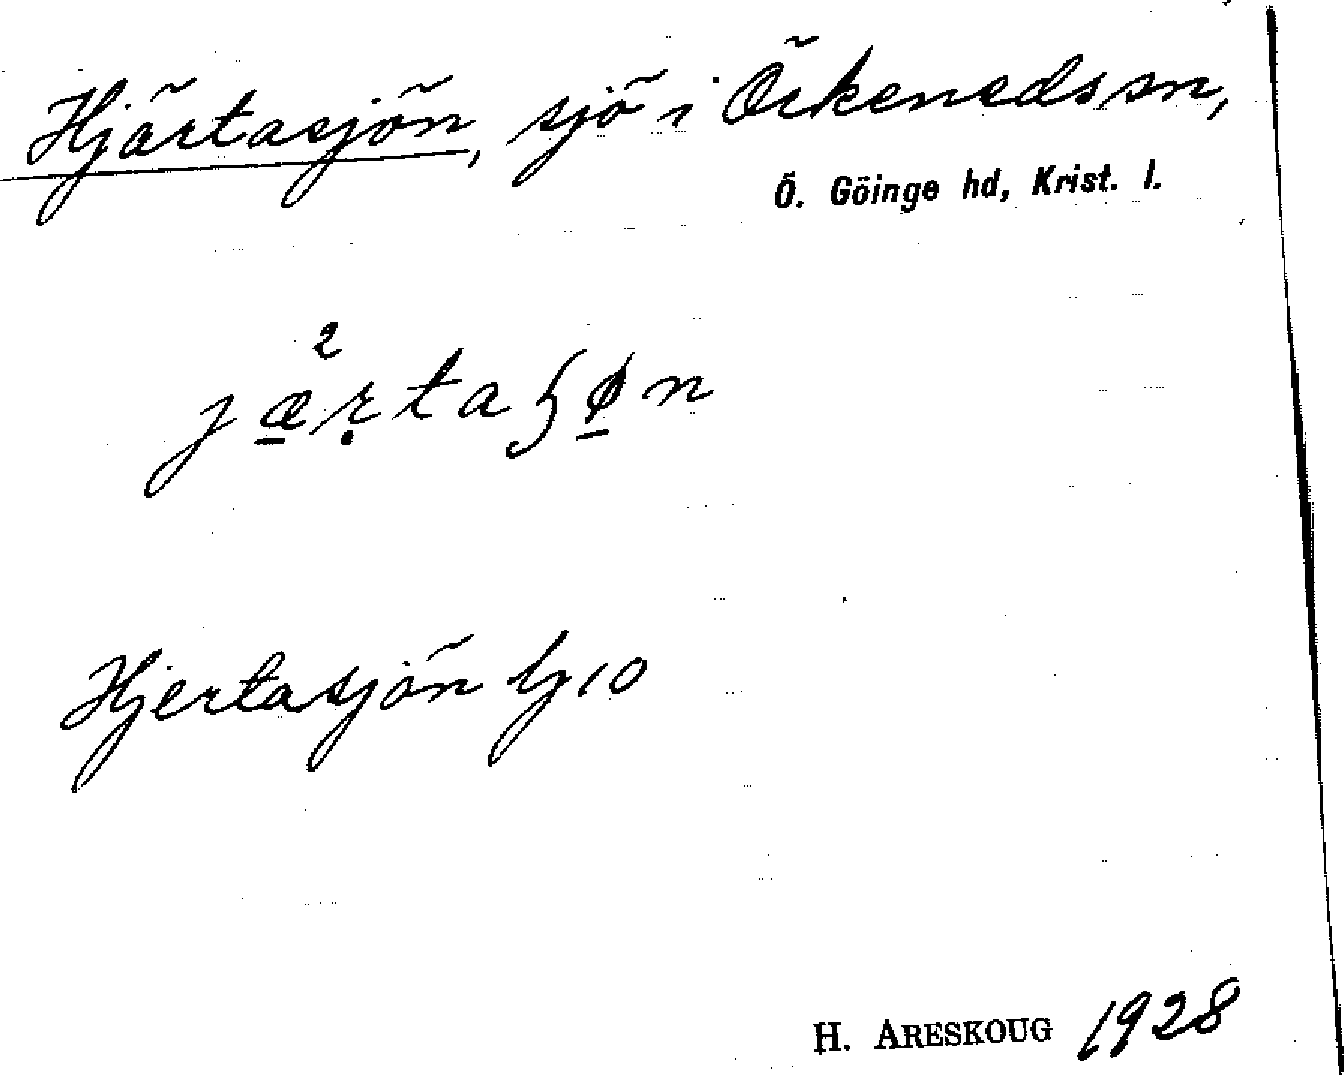 Hjärtasjön, sjö i Örkeneds sn,
Ö. Göinge hd, Krist. l.
2
jæ̱ṛtaʃø̱n
Hjertasjön bj 10
H. ARESKOUG 1928